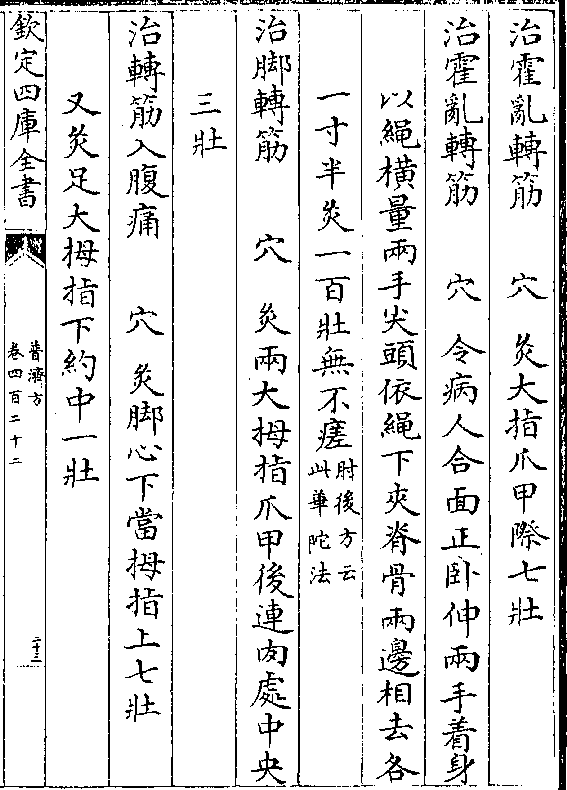 治霍亂轉筋　穴　灸大指爪甲際七壯
治霍亂轉筋　穴　令病人合面正卧伸兩手着身
以繩橫量兩手尖頭依繩下夾脊骨兩邊相去各
一寸半灸一百壯無不瘥肘後方云此華陀法
治脚轉筋　穴　灸兩大拇指爪甲後連肉處中央
三壯
治轉筋入腹痛　穴　灸脚心下當拇指上七壯
又灸足大拇指下約中一壯
欽定四庫全書
普濟方
卷四百二十二
二十三